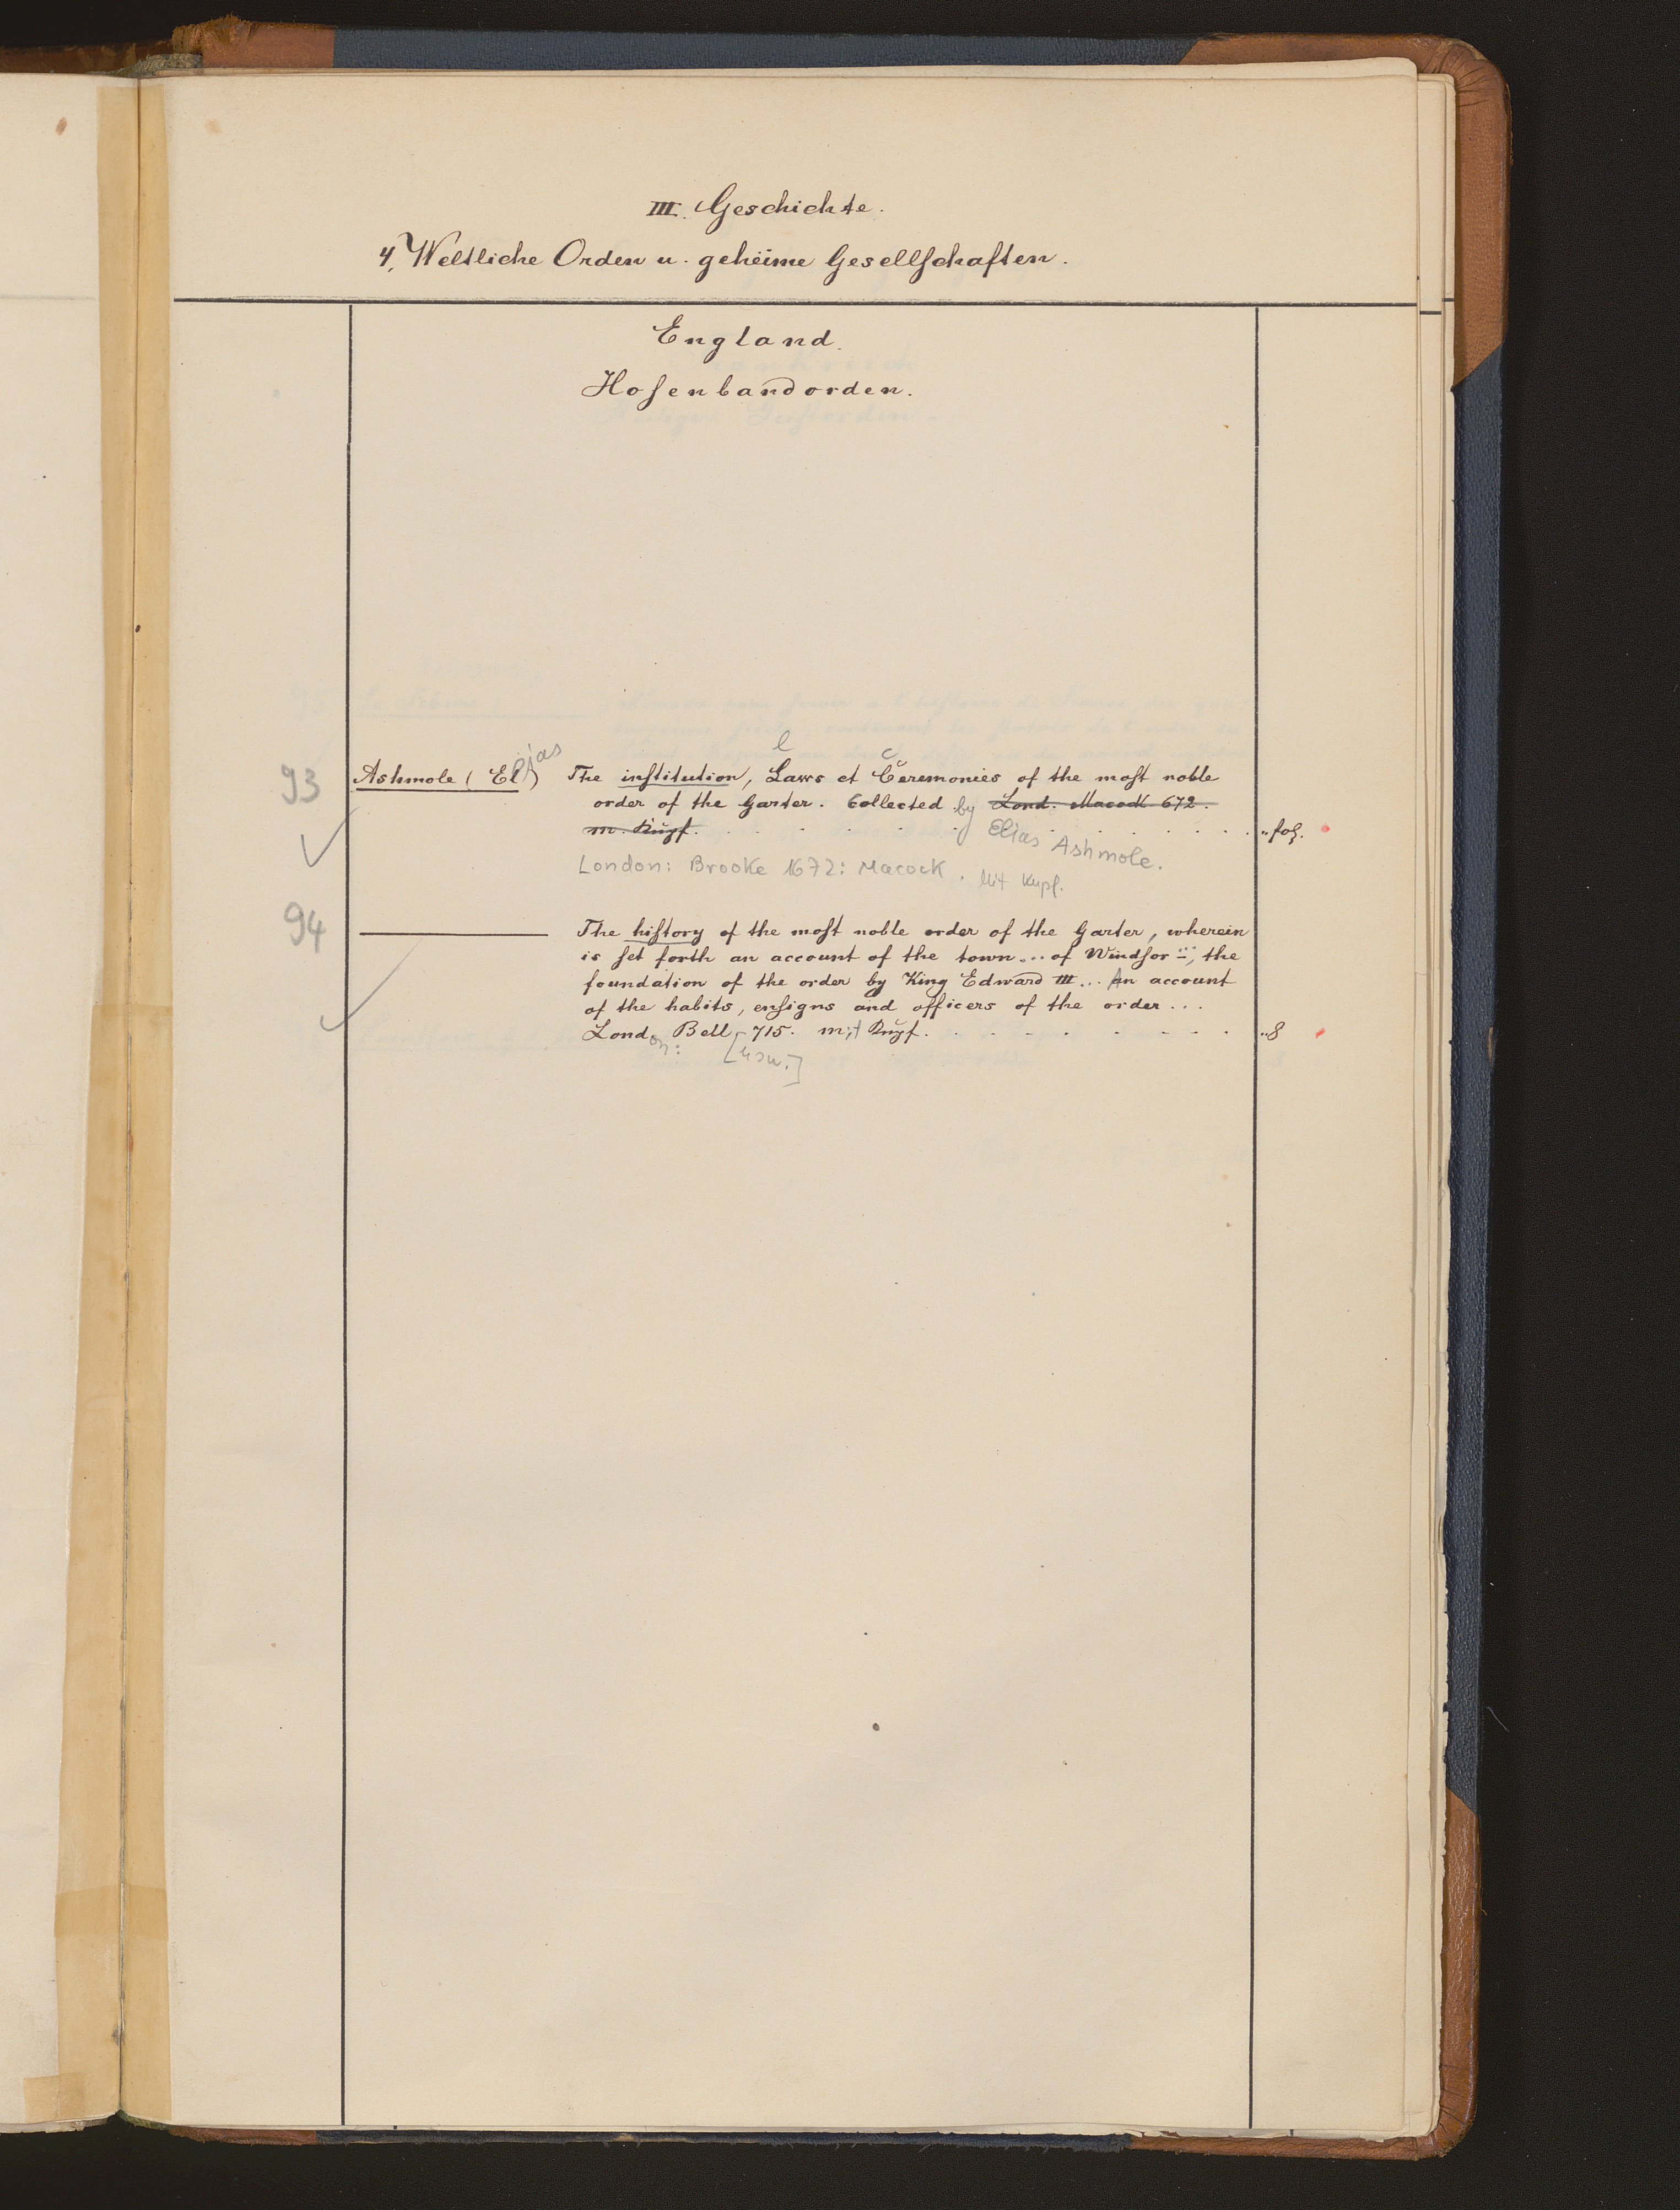 III. Geschichte.
4, Weltliche Orden u. geheime Gesellschaften.
England.
Hosenbandorden.
93 Ashmole (Elias) The institution, Laws et Ceremonies of the most noble
order of the Garter. Collected by Lond. Macock 672.
m. Kupf. Elias Ashmole. „ fol.
London: Brooke 1672: Macock. Mit Kupf.
94 ——— The history of the most noble order of the Garter, wherein
is set forth an account of the town... of Windsor..., the
foundation of the order by King Edward III... An account
of the habits, ensigns and officers of the order...
London: Bell 715. mit Kupf. „ 8